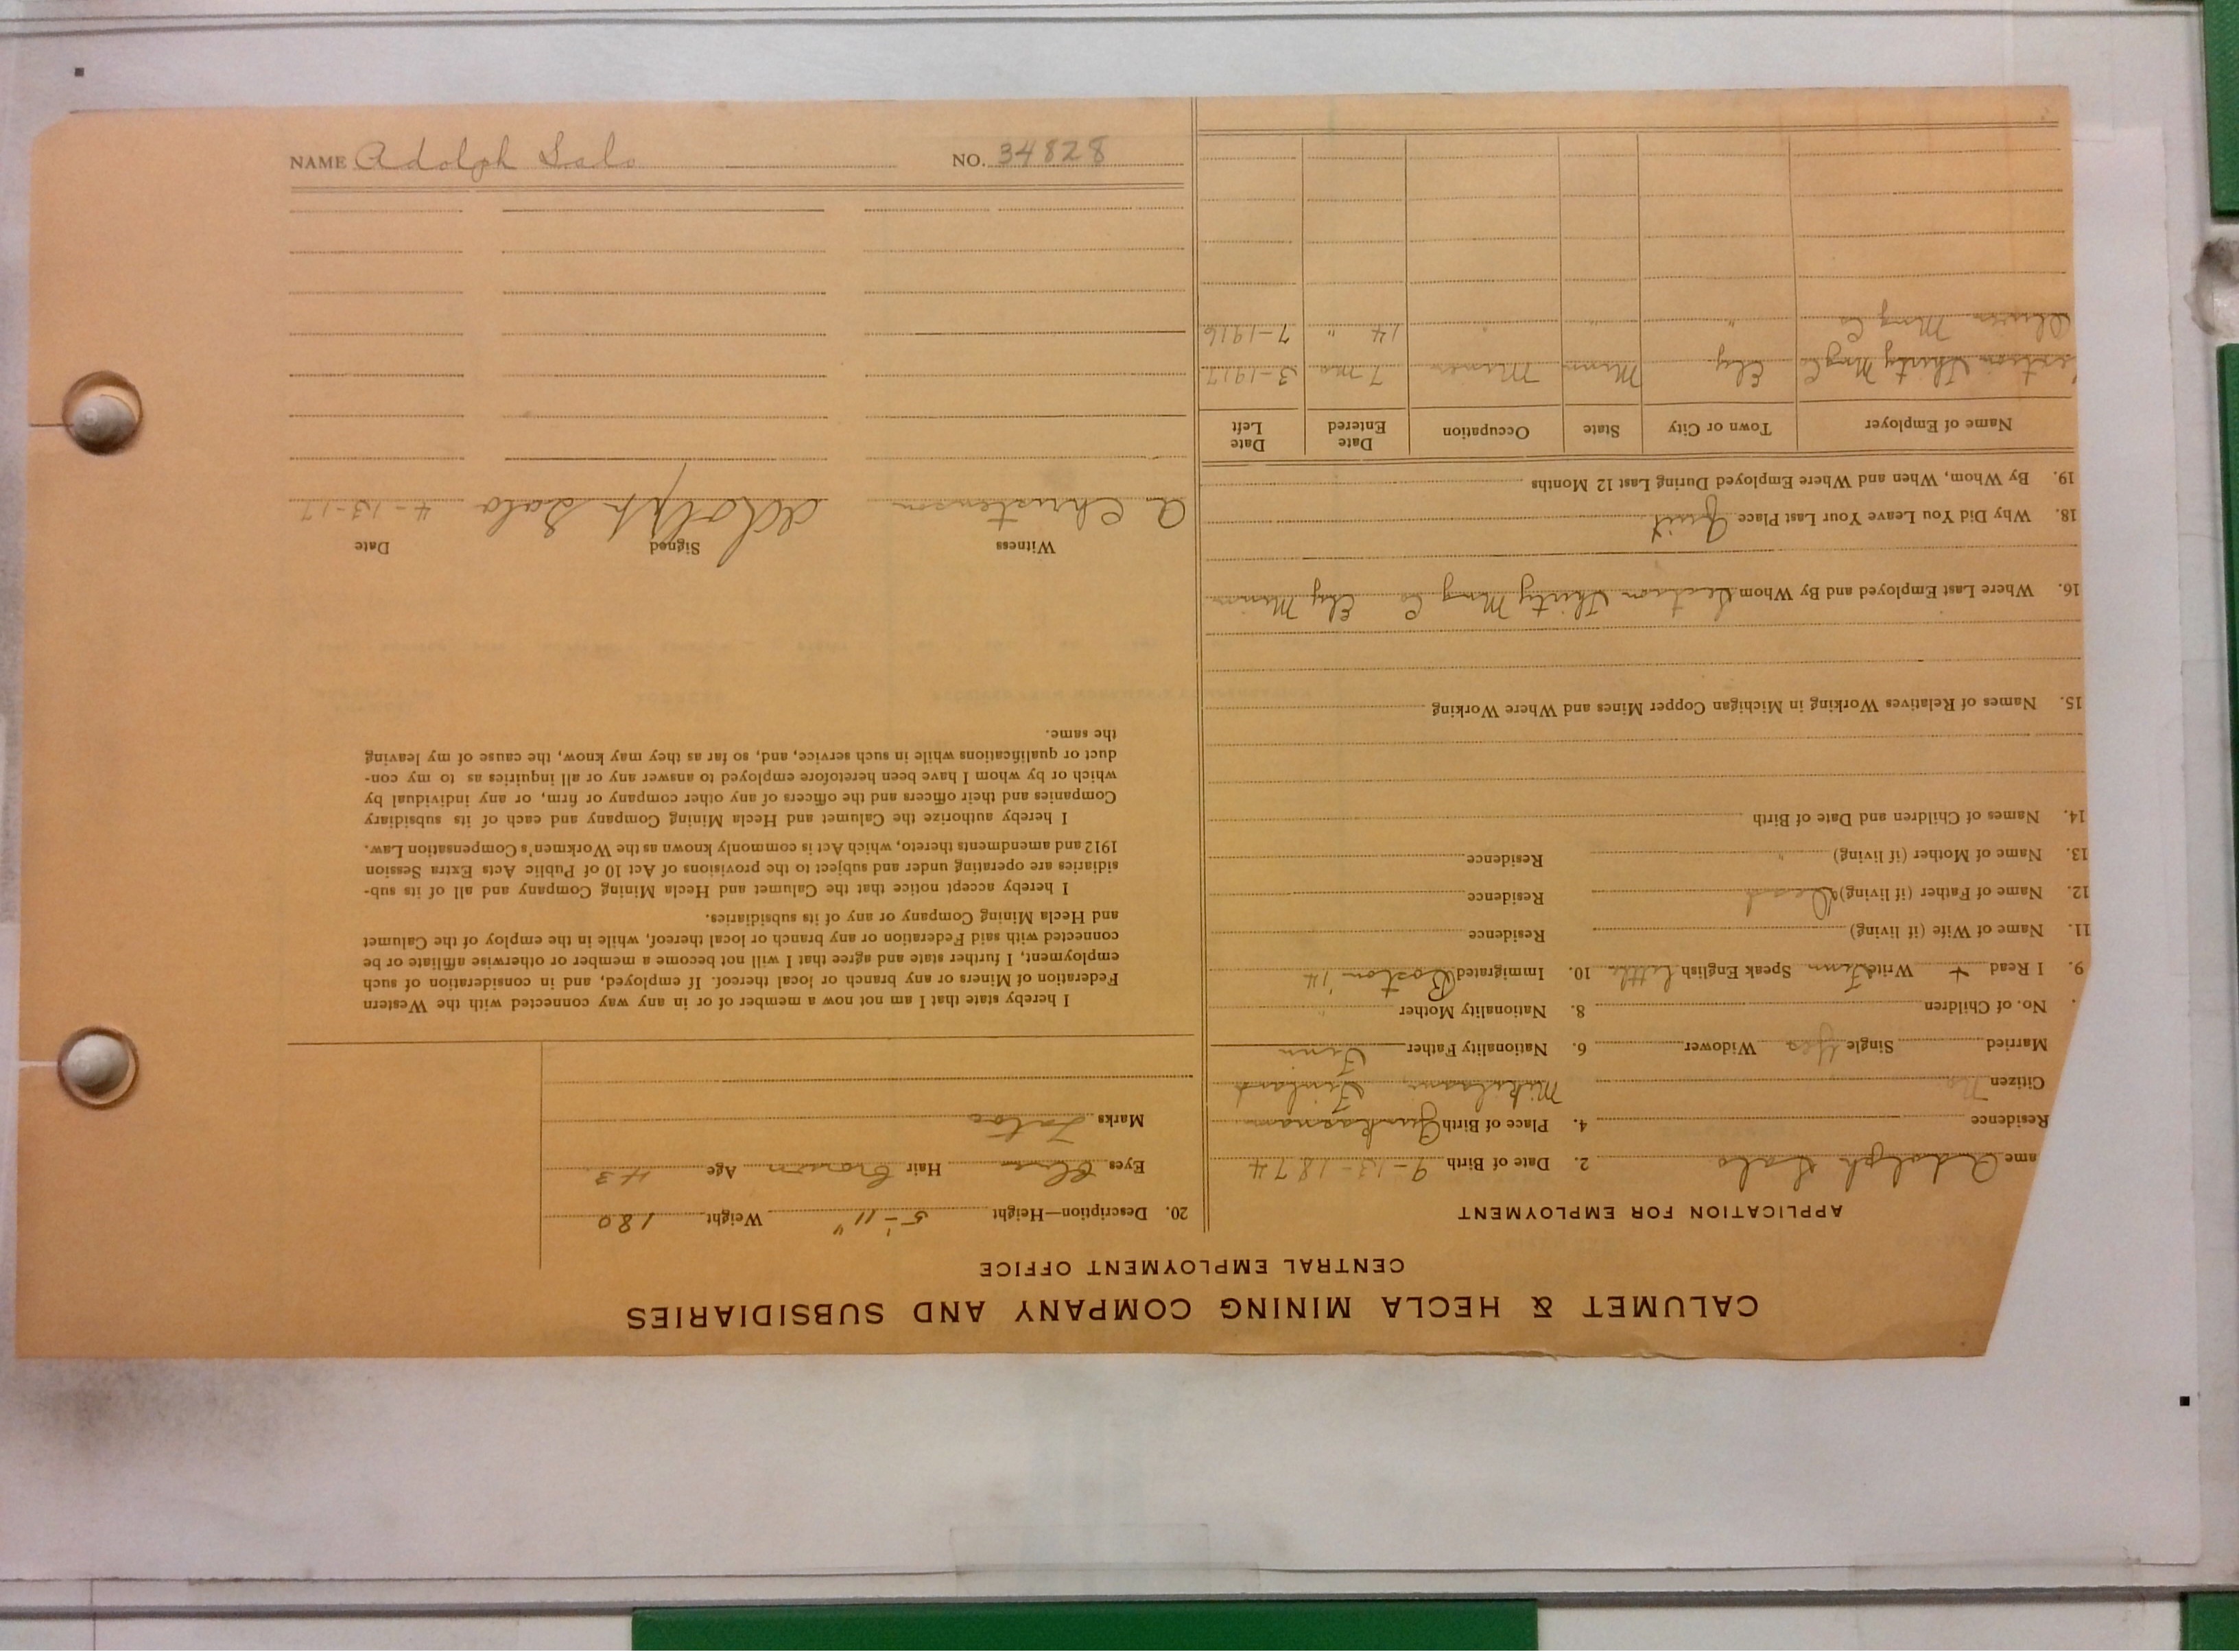 NAME Adolph Salo NO. 34828
CALUMET & HECLA MINING COMPANY AND SUBSIDIARIES
CENTRAL EMPLOYMENT OFFICE
APPLICATION FOR EMPLOYMENT
ame Adolph Salo 2. Date of Birth 9-13-1874
Residence 4. Place of Birth
Citizen No Finland
Married Single Yes Widower 6. Nationality Father Finn
No. of Children 8. Nationality Mother "
9. I Read + Write Finn Speak English Little 10. Immigrated Boston '14
11. Name of Wife (if living) Residence
12. Name of Father (if living) Dead Residence
13. Name of Mother (if living) " Residence
14. Names of Children and Date of Birth
15. Names of Relatives Working in Michigan Copper Mines and Where Working
16. Where Last Employed and By Whom Section Thirty Mng Co Ely Minn
18. Why Did You Leave Your Last Place Quit
19. By Whom, When and Where Employed During Last 12 Months
Name of Employer Town or City State Occupation Date Entered Date Left
Section Thirty Mng Co Ely Minn Miner 7 mo 3-1917
Mng Co " " " 14 " 7-1916
20. Description—Height 5'-11" Weight 180
Eyes Blue Hair Brown Age 43
Marks Tatoo
I hereby state that I am not now a member of or in any way connected with the Western
Federation of Miners or any branch or local thereof. If employed, and in consideration of such
employment, I further state and agree that I will not become a member or otherwise affiliate or be
connected with said Federation or any branch or local thereof, while in the employ of the Calumet
and Hecla Mining Company or any of its subsidiaries.
I hereby accept notice that the Calumet and Hecla Mining Company and all of its sub-
sidiaries are operating under and subject to the provisions of Act 10 of Public Acts Extra Session
1912 and amendments thereto, which Act is commonly known as the Workmen's Compensation Law.
I hereby authorize the Calumet and Hecla Mining Company and each of its subsidiary
Companies and their officers and the officers of any other company or firm, or any individual by
which or by whom I have been heretofore employed to answer any or all inquiries as to my con-
duct or qualifications while in such service, and, so far as they may know, the cause of my leaving
the same.
Witness Signed Date
A Christenson Adolph Salo 4-13-17